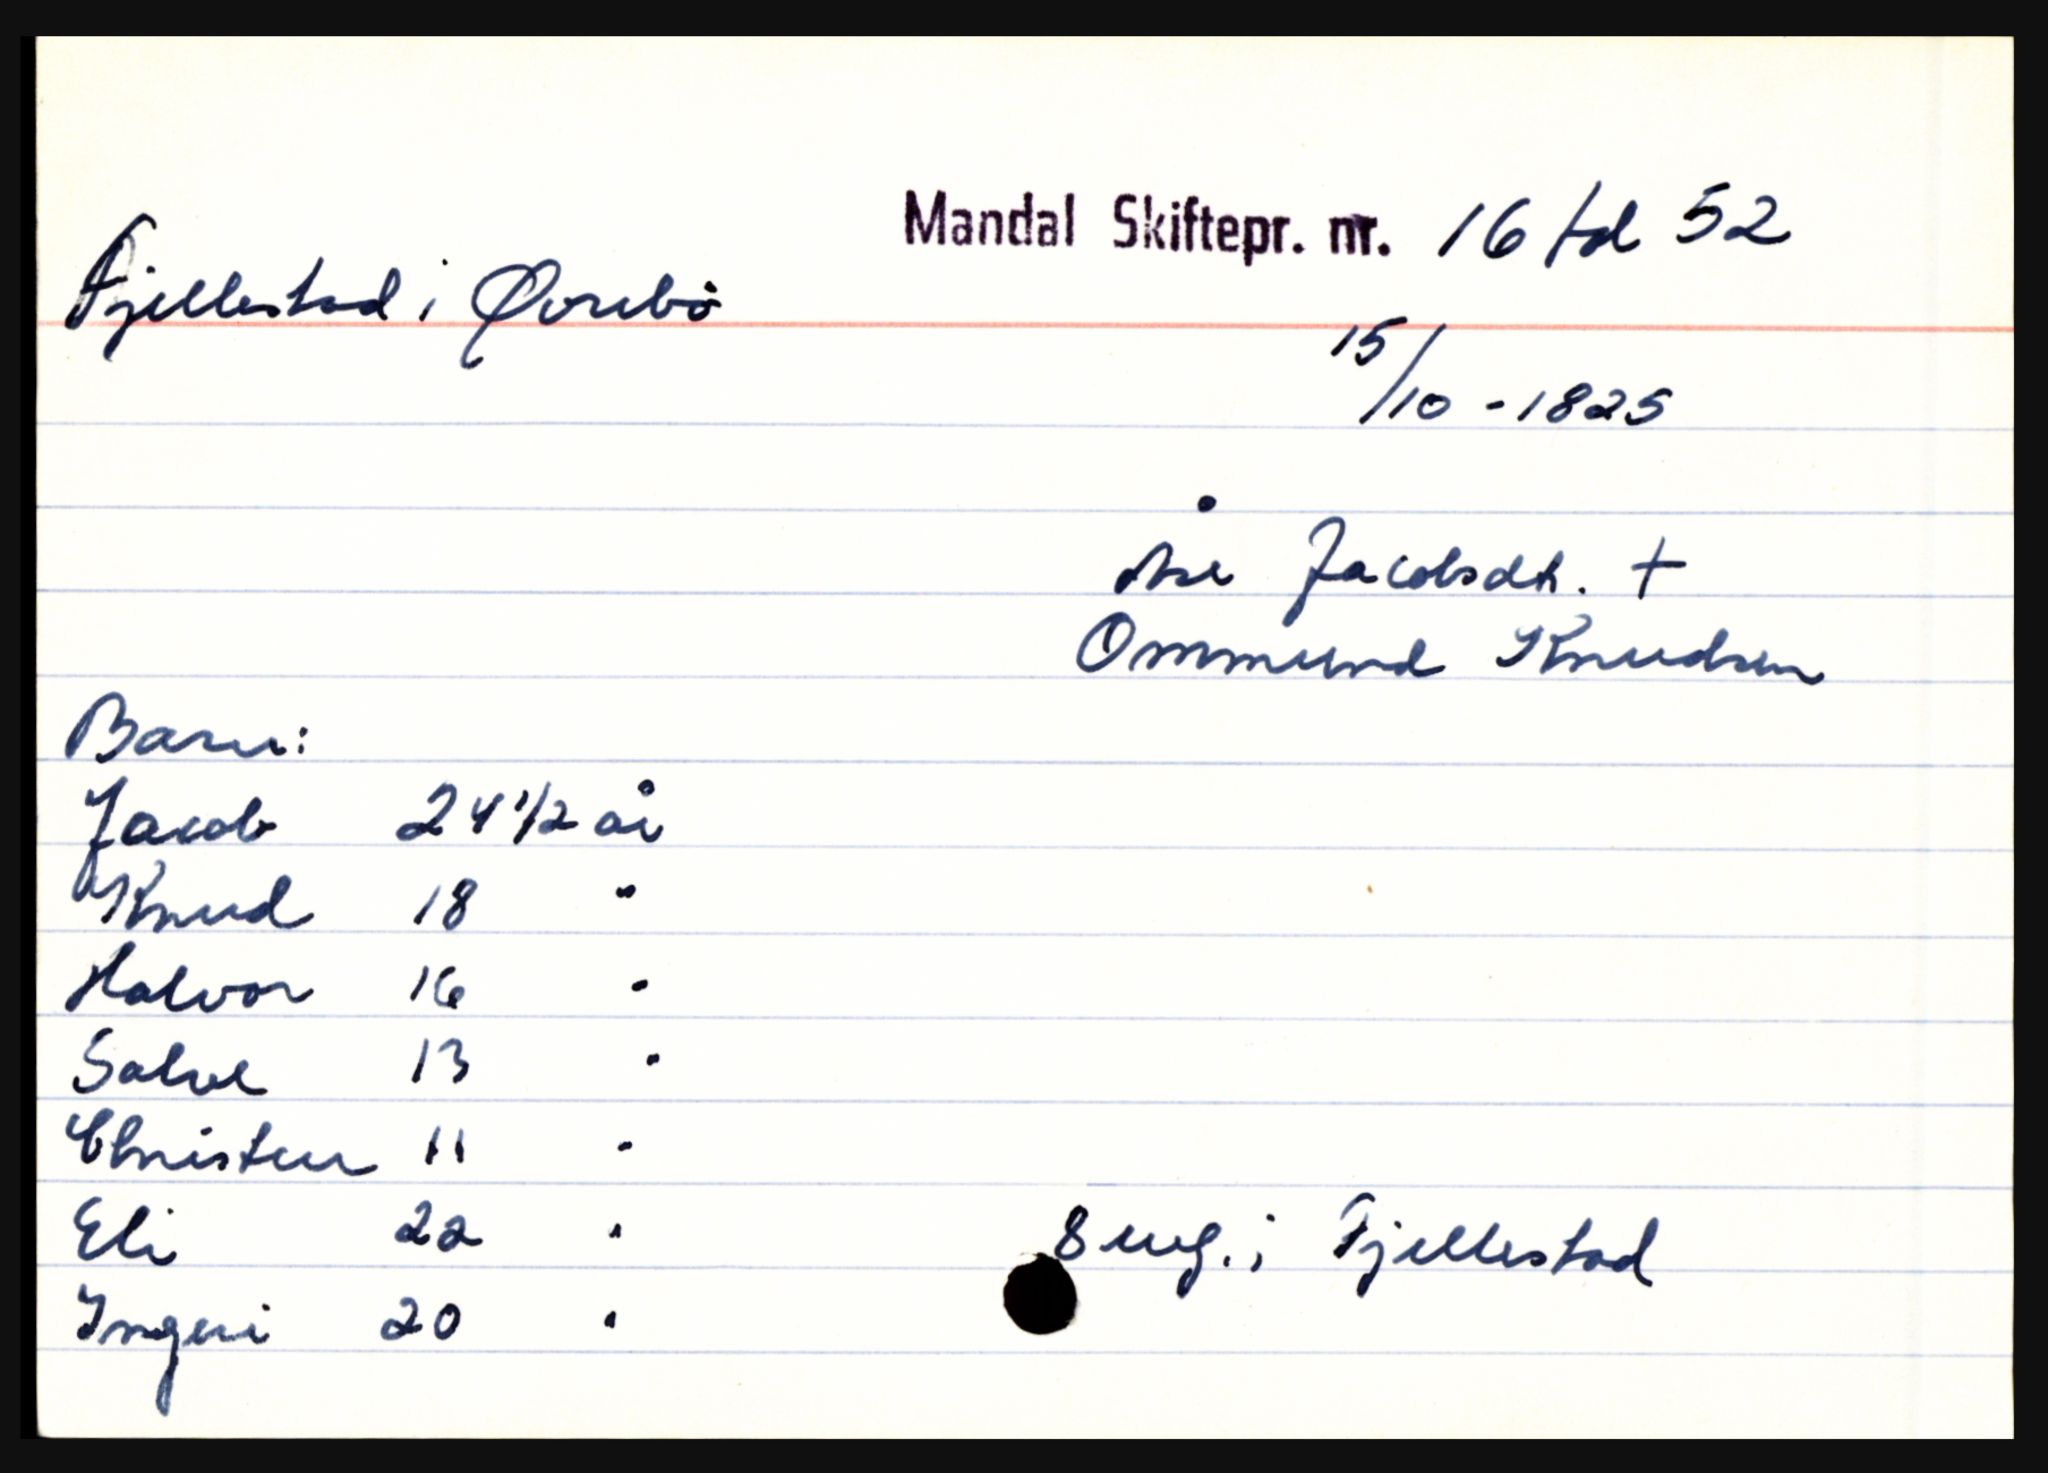 Mandal Skiftepr. nr. 16 fol 52
Fjellestad i Øvrebö
15/10 - 1825
Åse Jacobsdt. +
Ommund Knudsen
Barn:
Jacob 24 1/2 år
Knud 18 "
Halvor 16 "
Salve 13 "
Christen 11 "
Eli 22 "
Ingeri 20 "
8 eng. i Fjellestad